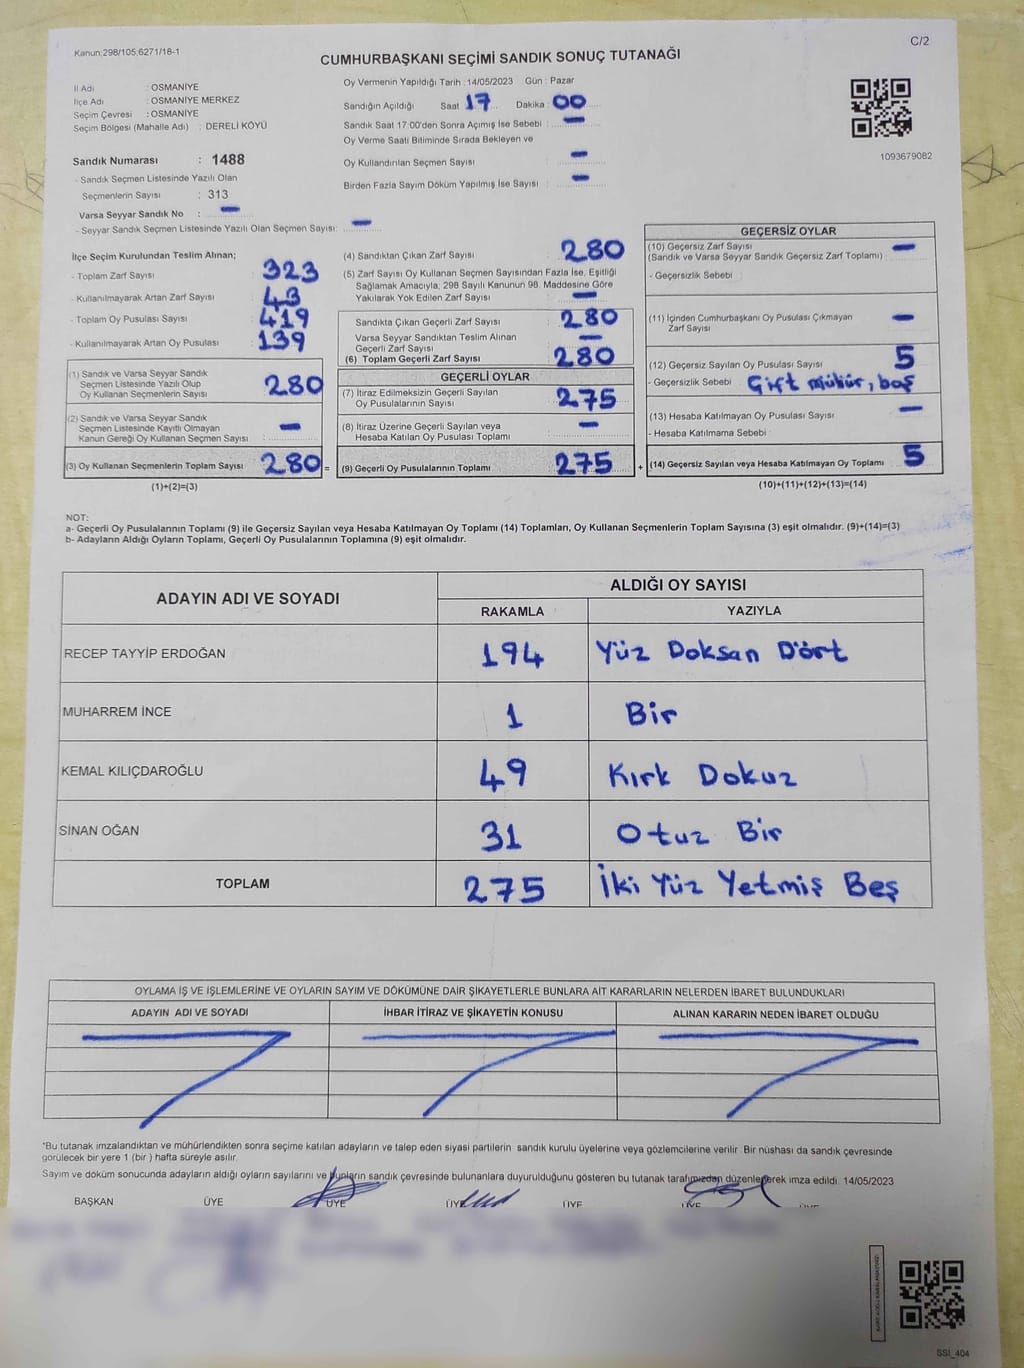 Kanun:298/105;6271/18-1
C/2
CUMHURBAŞKANI SEÇİMİ SANDIK SONUÇ TUTANAĞI
İl Adı : OSMANİYE
İlçe Adı : OSMANİYE MERKEZ
Seçim Çevresi : OSMANİYE
Seçim Bölgesi (Mahalle Adı) : DERELİ KÖYÜ
Sandık Numarası : 1488
- Sandık Seçmen Listesinde Yazılı Olan
Seçmenlerin Sayısı : 313
Varsa Seyyar Sandık No : —
- Seyyar Sandık Seçmen Listesinde Yazılı Olan Seçmen Sayısı: —
Oy Vermenin Yapıldığı Tarih : 14/05/2023 Gün : Pazar
Sandığın Açıldığı Saat 17 Dakika : 00
Sandık Saat 17:00'den Sonra Açımış İse Sebebi : —
Oy Verme Saati Bitiminde Sırada Bekleyen ve
Oy Kullandırılan Seçmen Sayısı : —
Birden Fazla Sayım Döküm Yapılmış İse Sayısı : —
1093679082
İlçe Seçim Kurulundan Teslim Alınan;
- Toplam Zarf Sayısı : 323
- Kullanılmayarak Artan Zarf Sayısı : 43
- Toplam Oy Pusulası Sayısı : 419
- Kullanılmayarak Artan Oy Pusulası : 139
(1) Sandık ve Varsa Seyyar Sandık
Seçmen Listesinde Yazılı Olup
Oy Kullanan Seçmenlerin Sayısı : 280
(2) Sandık ve Varsa Seyyar Sandık
Seçmen Listesinde Kayıtlı Olmayan
Kanun Gereği Oy Kullanan Seçmen Sayısı : —
(3) Oy Kullanan Seçmenlerin Toplam Sayısı : 280 =
(1)+(2)=(3)
(4) Sandıktan Çıkan Zarf Sayısı : 280
(5) Zarf Sayısı Oy Kullanan Seçmen Sayısından Fazla İse, Eşitliği
Sağlamak Amacıyla, 298 Sayılı Kanunun 98. Maddesine Göre
Yakılarak Yok Edilen Zarf Sayısı : —
Sandıkta Çıkan Geçerli Zarf Sayısı : 280
Varsa Seyyar Sandıktan Teslim Alınan
Geçerli Zarf Sayısı : —
(6) Toplam Geçerli Zarf Sayısı : 280
GEÇERLİ OYLAR
(7) İtiraz Edilmeksizin Geçerli Sayılan
Oy Pusulalarının Sayısı : 275
(8) İtiraz Üzerine Geçerli Sayılan veya
Hesaba Katılan Oy Pusulası Toplamı : —
(9) Geçerli Oy Pusulalarının Toplamı : 275 +
GEÇERSİZ OYLAR
(10) Geçersiz Zarf Sayısı : —
(Sandık ve Varsa Seyyar Sandık Geçersiz Zarf Toplamı)
- Geçersizlik Sebebi :
(11) İçinden Cumhurbaşkanı Oy Pusulası Çıkmayan
Zarf Sayısı : —
(12) Geçersiz Sayılan Oy Pusulası Sayısı : 5
- Geçersizlik Sebebi : Çift mühür, boş
(13) Hesaba Katılmayan Oy Pusulası Sayısı : —
- Hesaba Katılmama Sebebi :
(14) Geçersiz Sayılan veya Hesaba Katılmayan Oy Toplamı : 5
(10)+(11)+(12)+(13)=(14)
NOT:
a- Geçerli Oy Pusulalarının Toplamı (9) ile Geçersiz Sayılan veya Hesaba Katılmayan Oy Toplamı (14) Toplamları, Oy Kullanan Seçmenlerin Toplam Sayısına (3) eşit olmalıdır. (9)+(14)=(3)
b- Adayların Aldığı Oyların Toplamı, Geçerli Oy Pusulalarının Toplamına (9) eşit olmalıdır.
ADAYIN ADI VE SOYADI
ALDIĞI OY SAYISI
RAKAMLA YAZIYLA
RECEP TAYYİP ERDOĞAN 194 Yüz Doksan Dört
MUHARREM İNCE 1 Bir
KEMAL KILIÇDAROĞLU 49 Kırk Dokuz
SİNAN OĞAN 31 Otuz Bir
TOPLAM 275 İki Yüz Yetmiş Beş
OYLAMA İŞ VE İŞLEMLERİNE VE OYLARIN SAYIM VE DÖKÜMÜNE DAİR ŞİKAYETLERLE BUNLARA AİT KARARLARIN NELERDEN İBARET BULUNDUKLARI
ADAYIN ADI VE SOYADI İHBAR İTİRAZ VE ŞİKAYETİN KONUSU ALINAN KARARIN NEDEN İBARET OLDUĞU
*Bu tutanak imzalandıktan ve mühürlendikten sonra seçime katılan adayların ve talep eden siyasi partilerin sandık kurulu üyelerine veya gözlemcilerine verilir. Bir nüshası da sandık çevresinde
görülecek bir yere 1 (bir ) hafta süreyle asılır.
Sayım ve döküm sonucunda adayların aldığı oyların sayılarını ve bunların sandık çevresinde bulunanlara duyurulduğunu gösteren bu tutanak tarafımızdan düzenlenerek imza edildi. 14/05/2023
BAŞKAN ÜYE ÜYE ÜYE ÜYE ÜYE ÜYE
SSI_404